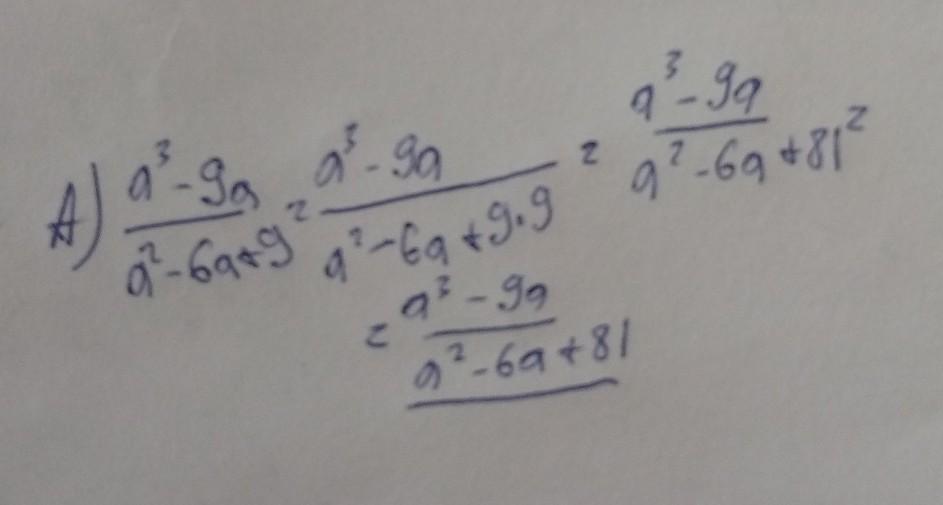 A) a³-9a / a²-6a+9 = a³-9a / a²-6a+9·9 = a³-9a / a²-6a+81²
= a³-9a / a²-6a+81